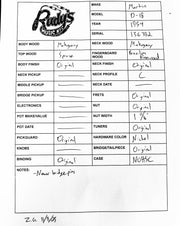 Rudy's
MUSIC
MAKE Martin
MODEL D-18
YEAR 1954
SERIAL
BODY WOOD Mahogany NECK WOOD Mahogany
TOP WOOD Spruce FINGERBOARD WOOD Brazilian Rosewood
BODY FINISH Original NECK FINISH Original
NECK PICKUP NECK PROFILE C
MIDDLE PICKUP NECK DATE
BRIDGE PICKUP FRETS Original
ELECTRONICS NUT Original
POT MAKE/VALUE NUT WIDTH 1 11/16"
POT DATE TUNERS Original
PICKGUARD Original HARDWARE COLOR Nickel
KNOBS BRIDGE/TAILPIECE Original
BINDING Original CASE NOHSC
NOTES:
-New bridge pins